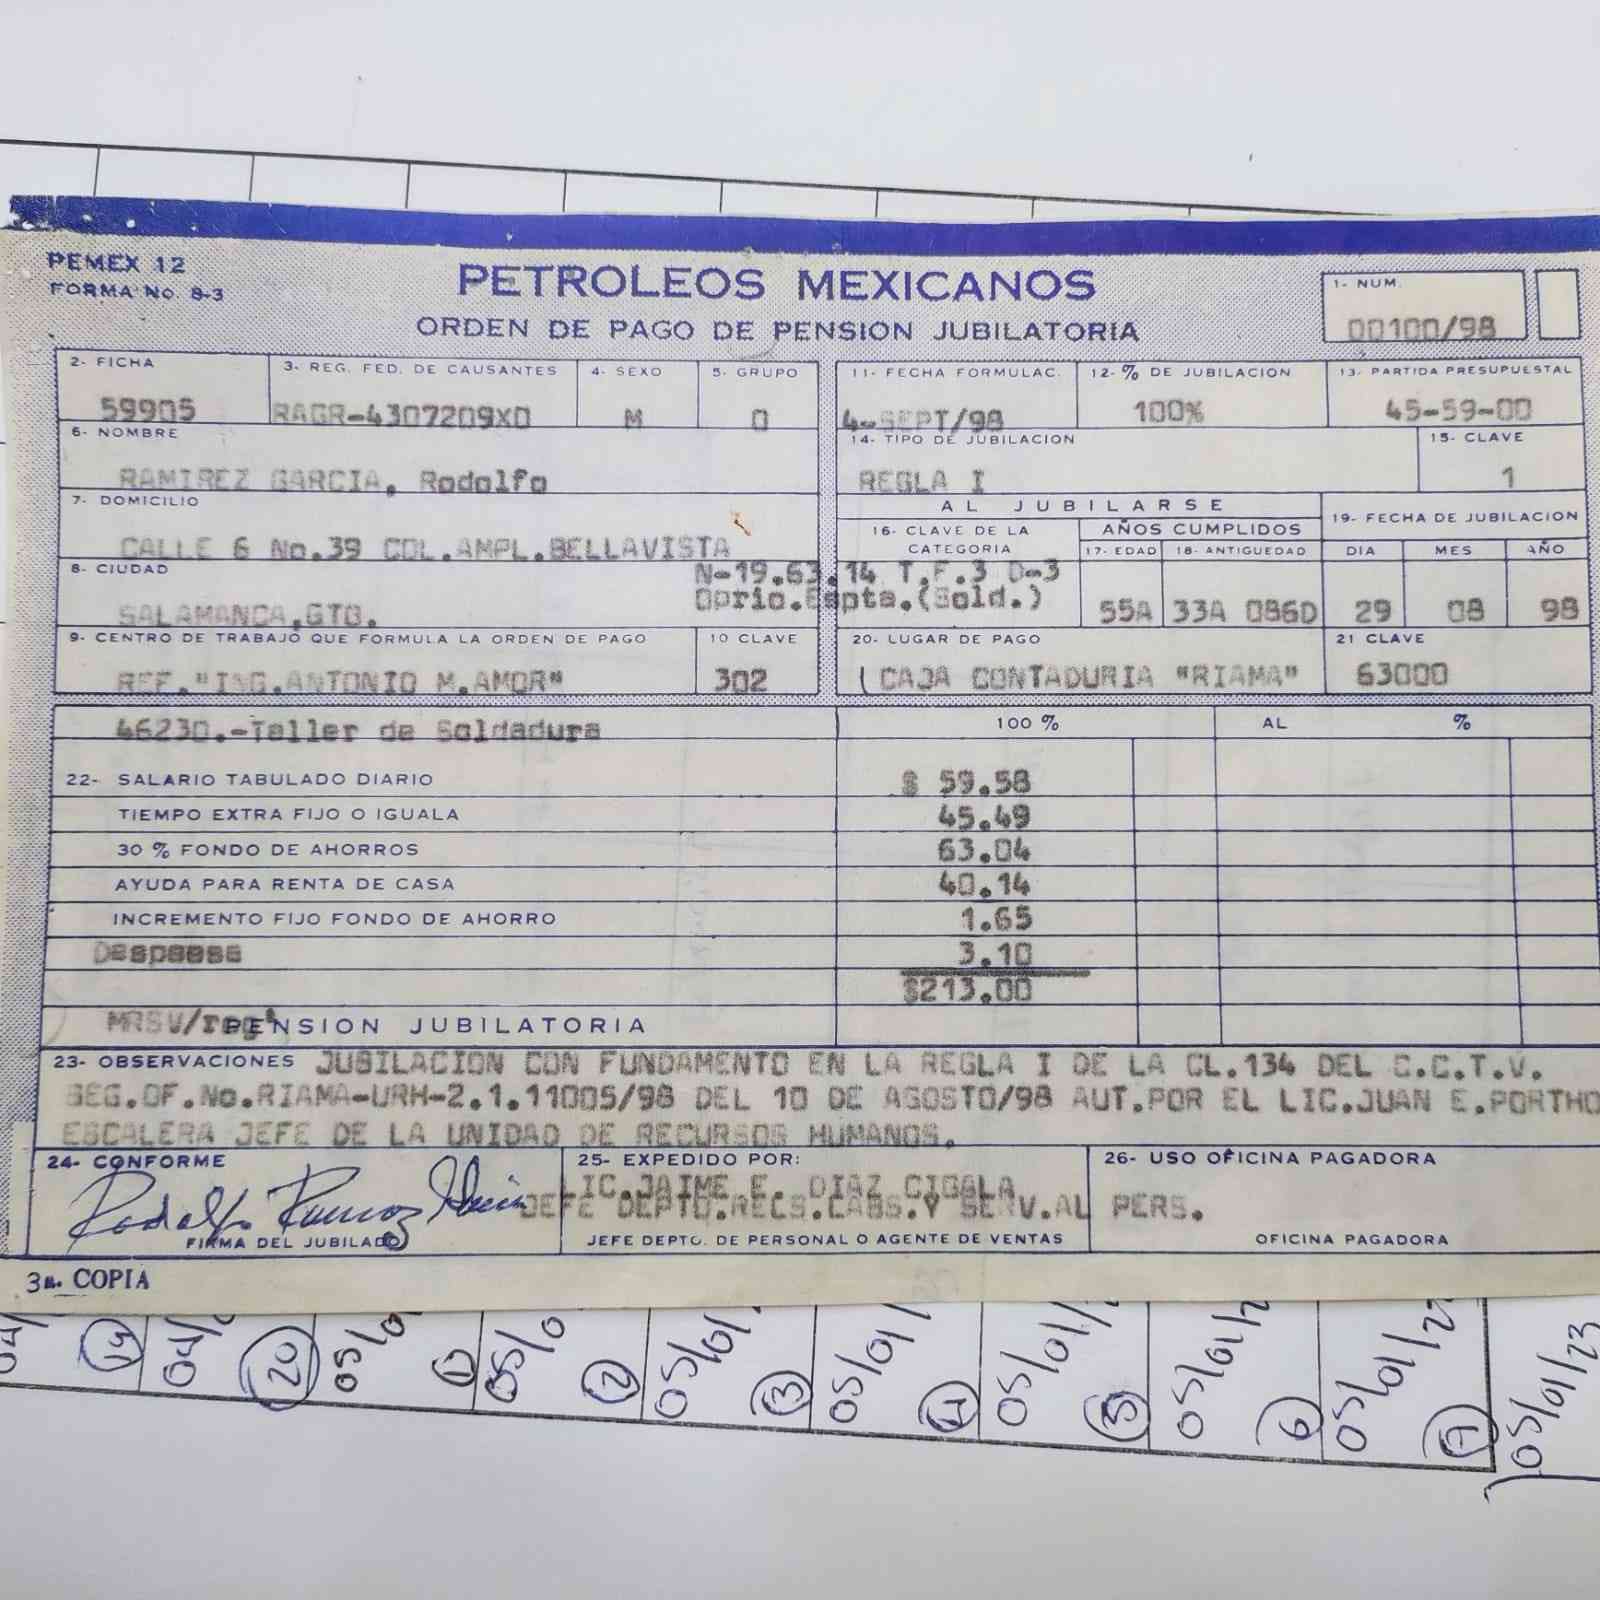 PEMEX 12
FORMA No. 8-3
PETROLEOS MEXICANOS
ORDEN DE PAGO DE PENSION JUBILATORIA
1- NUM.
00100/98
2- FICHA
59905
3- REG. FED. DE CAUSANTES
RAGR-4307209X0
4- SEXO
M
5- GRUPO
0
6- NOMBRE
RAMIREZ GARCIA, Rodolfo
7- DOMICILIO
CALLE 6 No.39 COL.AMPL.BELLAVISTA
8- CIUDAD
SALAMANCA,GTO.
9- CENTRO DE TRABAJO QUE FORMULA LA ORDEN DE PAGO
REF."ING.ANTONIO M.AMOR"
10 CLAVE
302
11- FECHA FORMULAC.
4-SEPT/98
12- % DE JUBILACION
100%
13- PARTIDA PRESUPUESTAL
45-59-00
14- TIPO DE JUBILACION
REGLA I
15- CLAVE
1
AL JUBILARSE
16- CLAVE DE LA CATEGORIA
N-19.63.14 T.F.3 D-3
Oprio.Espta.(Sold.)
AÑOS CUMPLIDOS
17- EDAD
55A
18- ANTIGUEDAD
33A 086D
19- FECHA DE JUBILACION
DIA MES AÑO
29 08 98
20- LUGAR DE PAGO
CAJA CONTADURIA "RIAMA"
21 CLAVE
63000
46230.-Taller de Soldadura
100 % AL %
22- SALARIO TABULADO DIARIO $ 59.58
TIEMPO EXTRA FIJO O IGUALA 45.49
30 % FONDO DE AHORROS 63.04
AYUDA PARA RENTA DE CASA 40.14
INCREMENTO FIJO FONDO DE AHORRO 1.65
Despensa 3.10
$213.00
MRSV/reg' PENSION JUBILATORIA
23- OBSERVACIONES JUBILACION CON FUNDAMENTO EN LA REGLA I DE LA CL.134 DEL C.C.T.V.
SEG.OF.No.RIAMA-URH-2.1.11005/98 DEL 10 DE AGOSTO/98 AUT.POR EL LIC.JUAN E.PORTHO
ESCALERA JEFE DE LA UNIDAD DE RECURSOS HUMANOS.
24- CONFORME
Rodolfo Ramirez Garcia
FIRMA DEL JUBILADO
25- EXPEDIDO POR:
LIC.JAIME E. DIAZ CIGALA
JEFE DEPTO.RECS.LABS.Y SERV.AL PERS.
JEFE DEPTO. DE PERSONAL O AGENTE DE VENTAS
26- USO OFICINA PAGADORA
OFICINA PAGADORA
3a. COPIA
19 20 1 2 3 4 5 6 7
05/01/23